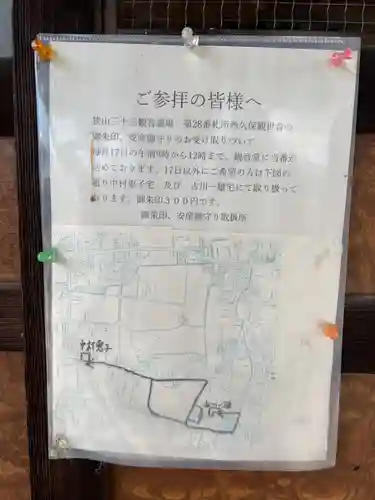 ご参拝の皆様へ
狭山三十三観音霊場 第28番札所西久保観世音の
御朱印、安産御守りのお受け取りついて
毎月17日の午前9時から12時まで、観音堂に当番が
詰めております。17日以外にご希望の方は下図の
通り中村恵子宅 及び 古川一雄宅にて取り扱って
おります。御朱印300円です。
御朱印、安産御守り取扱所